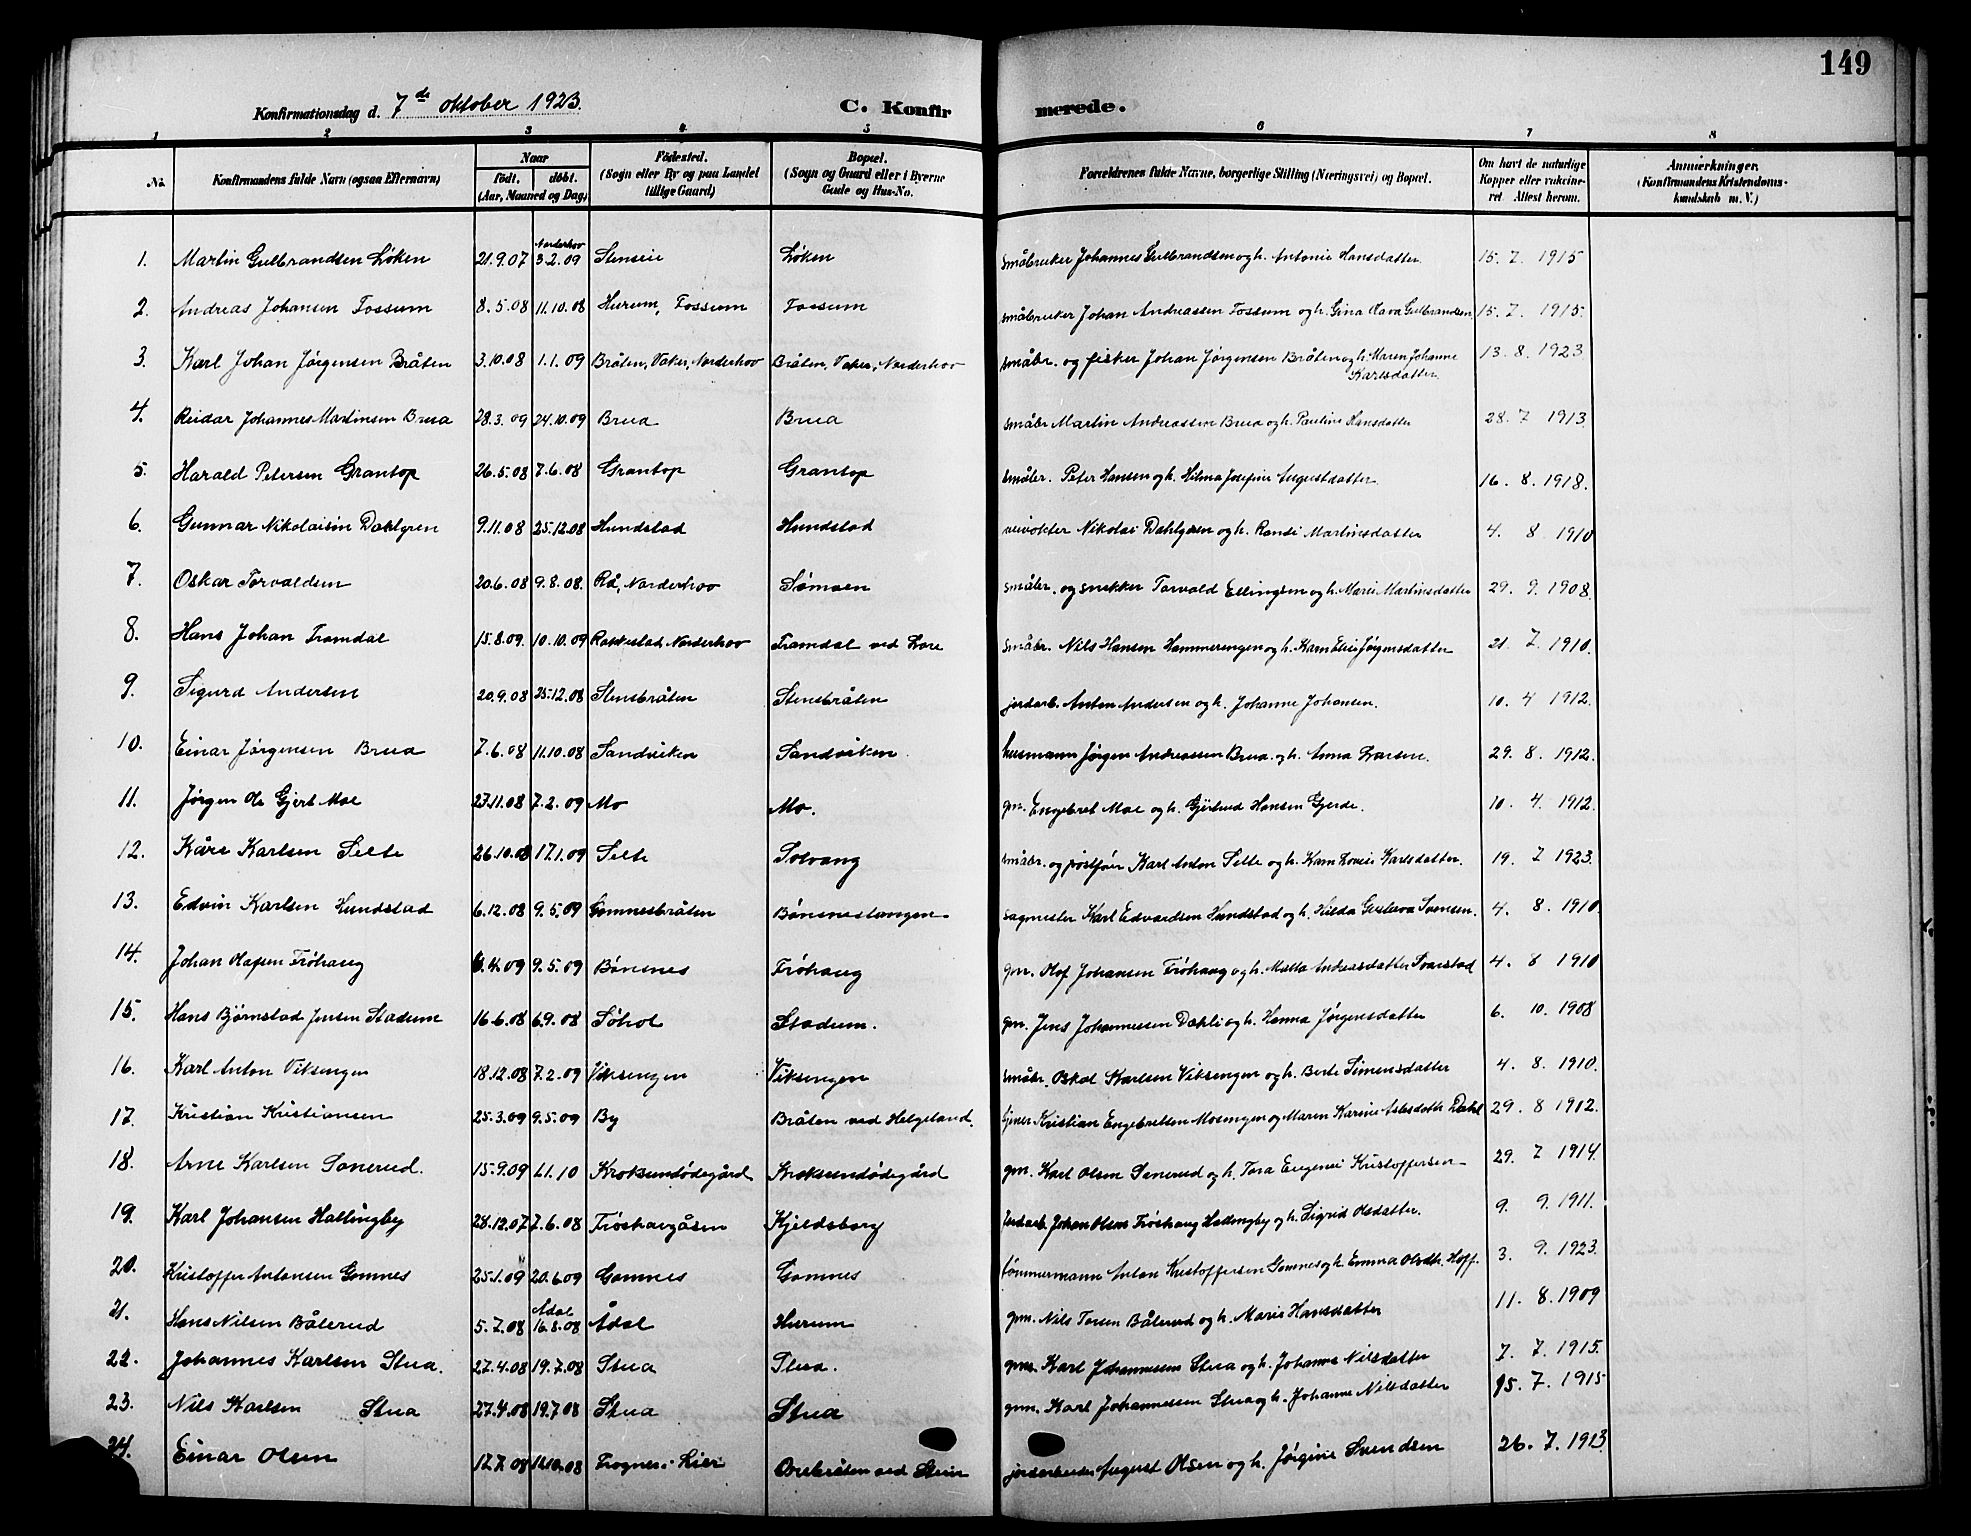 149
Konfirmationsdag d. 7de oktober 1923. C. Konfirmerede.
1 2 3 4 5 6 7 8
No. Konfirmandens fulde Navn (ogsaa Efternavn) Naar født. døbt. (Aar, Maaned og Dag) Fødested. (Sogn eller By og paa Landet tillige Gaard) Bopæl. (Sogn og Gaard eller i Byerne Gade og Hus-No. Forældrenes fulde Navne, borgerlige Stilling (Næringsvei) og Bopæl. Om havt de naturlige Kopper eller vakcineret Attest herom. Anmærkninger. (Konfirmandens Kristendomskundskab m. V.)
1. Martin Gulbrandsen Løken 21.9.07 Norderhov 3.2.09 Stenseie Løken småbruker Johannes Gulbrandsen og h. Antonie Hansdatter 15. 7. 1915
2. Andreas Johansen Fossum 8.5.08 11.10.08 Hurum, Fossum Fossum småbruker Johan Andreassen Fossum og h. Gina Olava Gulbrandsen 15. 7. 1915.
3. Karl Johan Jørgensen Bråten 3.10.08 1.1.09 Bråten, Vaker, Norderhov Bråten, Vaker, Norderhov småbr. og fisker Johan Jørgensen Bråten og h. Maren Johanne Karlsdatter. 13. 8. 1923
4. Reidar Johannes Martinsen Brua 28.3.09 24.10.09 Brua Brua småbr Martin Andreassen Brua og h. Pauline Hansdatter 28. 7 1913.
5. Harald Petersen Grantop 26.5.08 7.6.08 Grantop Grantop småbr. Peter Hansen og h. Hilma Josefine Augustdatter 16. 8. 1918.
6. Gunnar Nikolaisen Dahlgren 9.11.08 25.12.08 Hundstad Hundstad veivokter Nikolai Dahlgren og h. Randi Martinsdatter 4. 8 1910
7. Oskar Torvaldsen 20.6.08 9.8.08. Rå, Norderhov Sømoen småbr. og snekker Torvald Ellingsen og h. Marie Martinsdatter 29. 9. 1908.
8. Hans Johan Framdal 15.8.09. 10.10.09 Rakkestad, Norderhov Framdal ved Lore småbr. Nils Hansen Hammerengen og h. Karn Elise Jørgensdatter 21. 7. 1910.
9. Sigurd Andersen 20.9.08 25.12.08 Stensbråten Stensbråten jordarb. Anton Andersen og h. Johanne Johansen. 10. 4 1912.
10. Einar Jørgensen Brua 7.6.08 11.10.08 Sandviken Sandviken. husmann Jørgen Andreassen Brua og h. Anna Larsen. 29. 8. 1912.
11. Jørgen Ole Gjert Moe 27.11.08 7.2.09 Mo Mo. gm. Engebret Moe og h. Gjertrud Hansen Gjerde. 10. 4. 1912.
12. Kåre Karlsen Selte 26.10.08 17.1.09 Selte Solvang småbr. og postfører Karl Anton Selte og h. Karn Lovise Karlsdatter. 19. 7 1923.
13. Edvin Karlsen Hundstad 6.12.08 9.5.09 Gomnesbråten Bønsnestangen sagmester Karl Edvardsen Hundstad og h. Hilda Gustava Svensen. 4. 8. 1910.
14. Johan Olafsen Frøhaug 4.4.09 9.5.09 Bønsnes Frøhaug gm. Olof Johansen Frøhaug og h. Matta Andreasdatter Svarstad 4. 8 1910
15. Hans Bjørnstad Jensen Stadum 16.6.08 6.9.08 Søhol Stadum. gm. Jens Johannessen Dæhli og h. Hanna Jørgensdatter 6. 10. 1908
16. Karl Anton Viksengen 18.12.08 7.2.09 Viksengen Viksengen småbr. Oskal Karlsen Viksengen og h. Berte Simensdatter 4. 8. 1910.
17. Kristian Kristiansen 25.3.09 9.5.09 By Bråten ved Helgeland. tjener Kristian Engebretsen Mosengen og Maren Karine Aslesdatt. Dahl 29. 8 1912.
18. Arne Karlsen Sonerud. 15.9.09 1.1.10 Kroksundødegård Kroksundødegård gm. Karl Olsen Sonerud og h. Tora Eugenie Kristoffersen 29. 7 1914.
19. Karl Johansen Hallingby 28.12.07 7.6.08 Frøshaugåsen Kjeldsborg Jordarb. Johan Olsen Frøshaug Hallingby og h. Sigrid Olsdatter. 9. 9. 1911.
20. Kristoffer Antonsen Gomnes 25.1.09 20.6.09 Gomnes Gomnes tømmermann Anton Kristoffersen Gomnes og h. Emma Olsdtr. Hoff. 3. 9. 1923.
21. Hans Nilsen Bålerud 5.7.08 Ådal 16.8.08 Ådal Hurum gm. Nils Torsen Bålerud og h. Marie Hansdatter 11. 8. 1909
22. Johannes Karlsen Stua. 27.4.08 19.7.08 Stua Stua. gm. Karl Johannessen Stua og h. Johanne Nilsdatter 7. 7. 1915.
23. Nils Karlsen Stua 27.4.08 19.7.08 Stua Stua gm. Karl Johannessen Stua og h. Johanne Nilsdatter 15. 7. 1915
24. Einar Olsen 12.7.08 11.10.08 Frogner i Lier Overbråten ved Stein jordarbeider August Olsen og h. Jørgine Svendsen 26. 7. 1913.